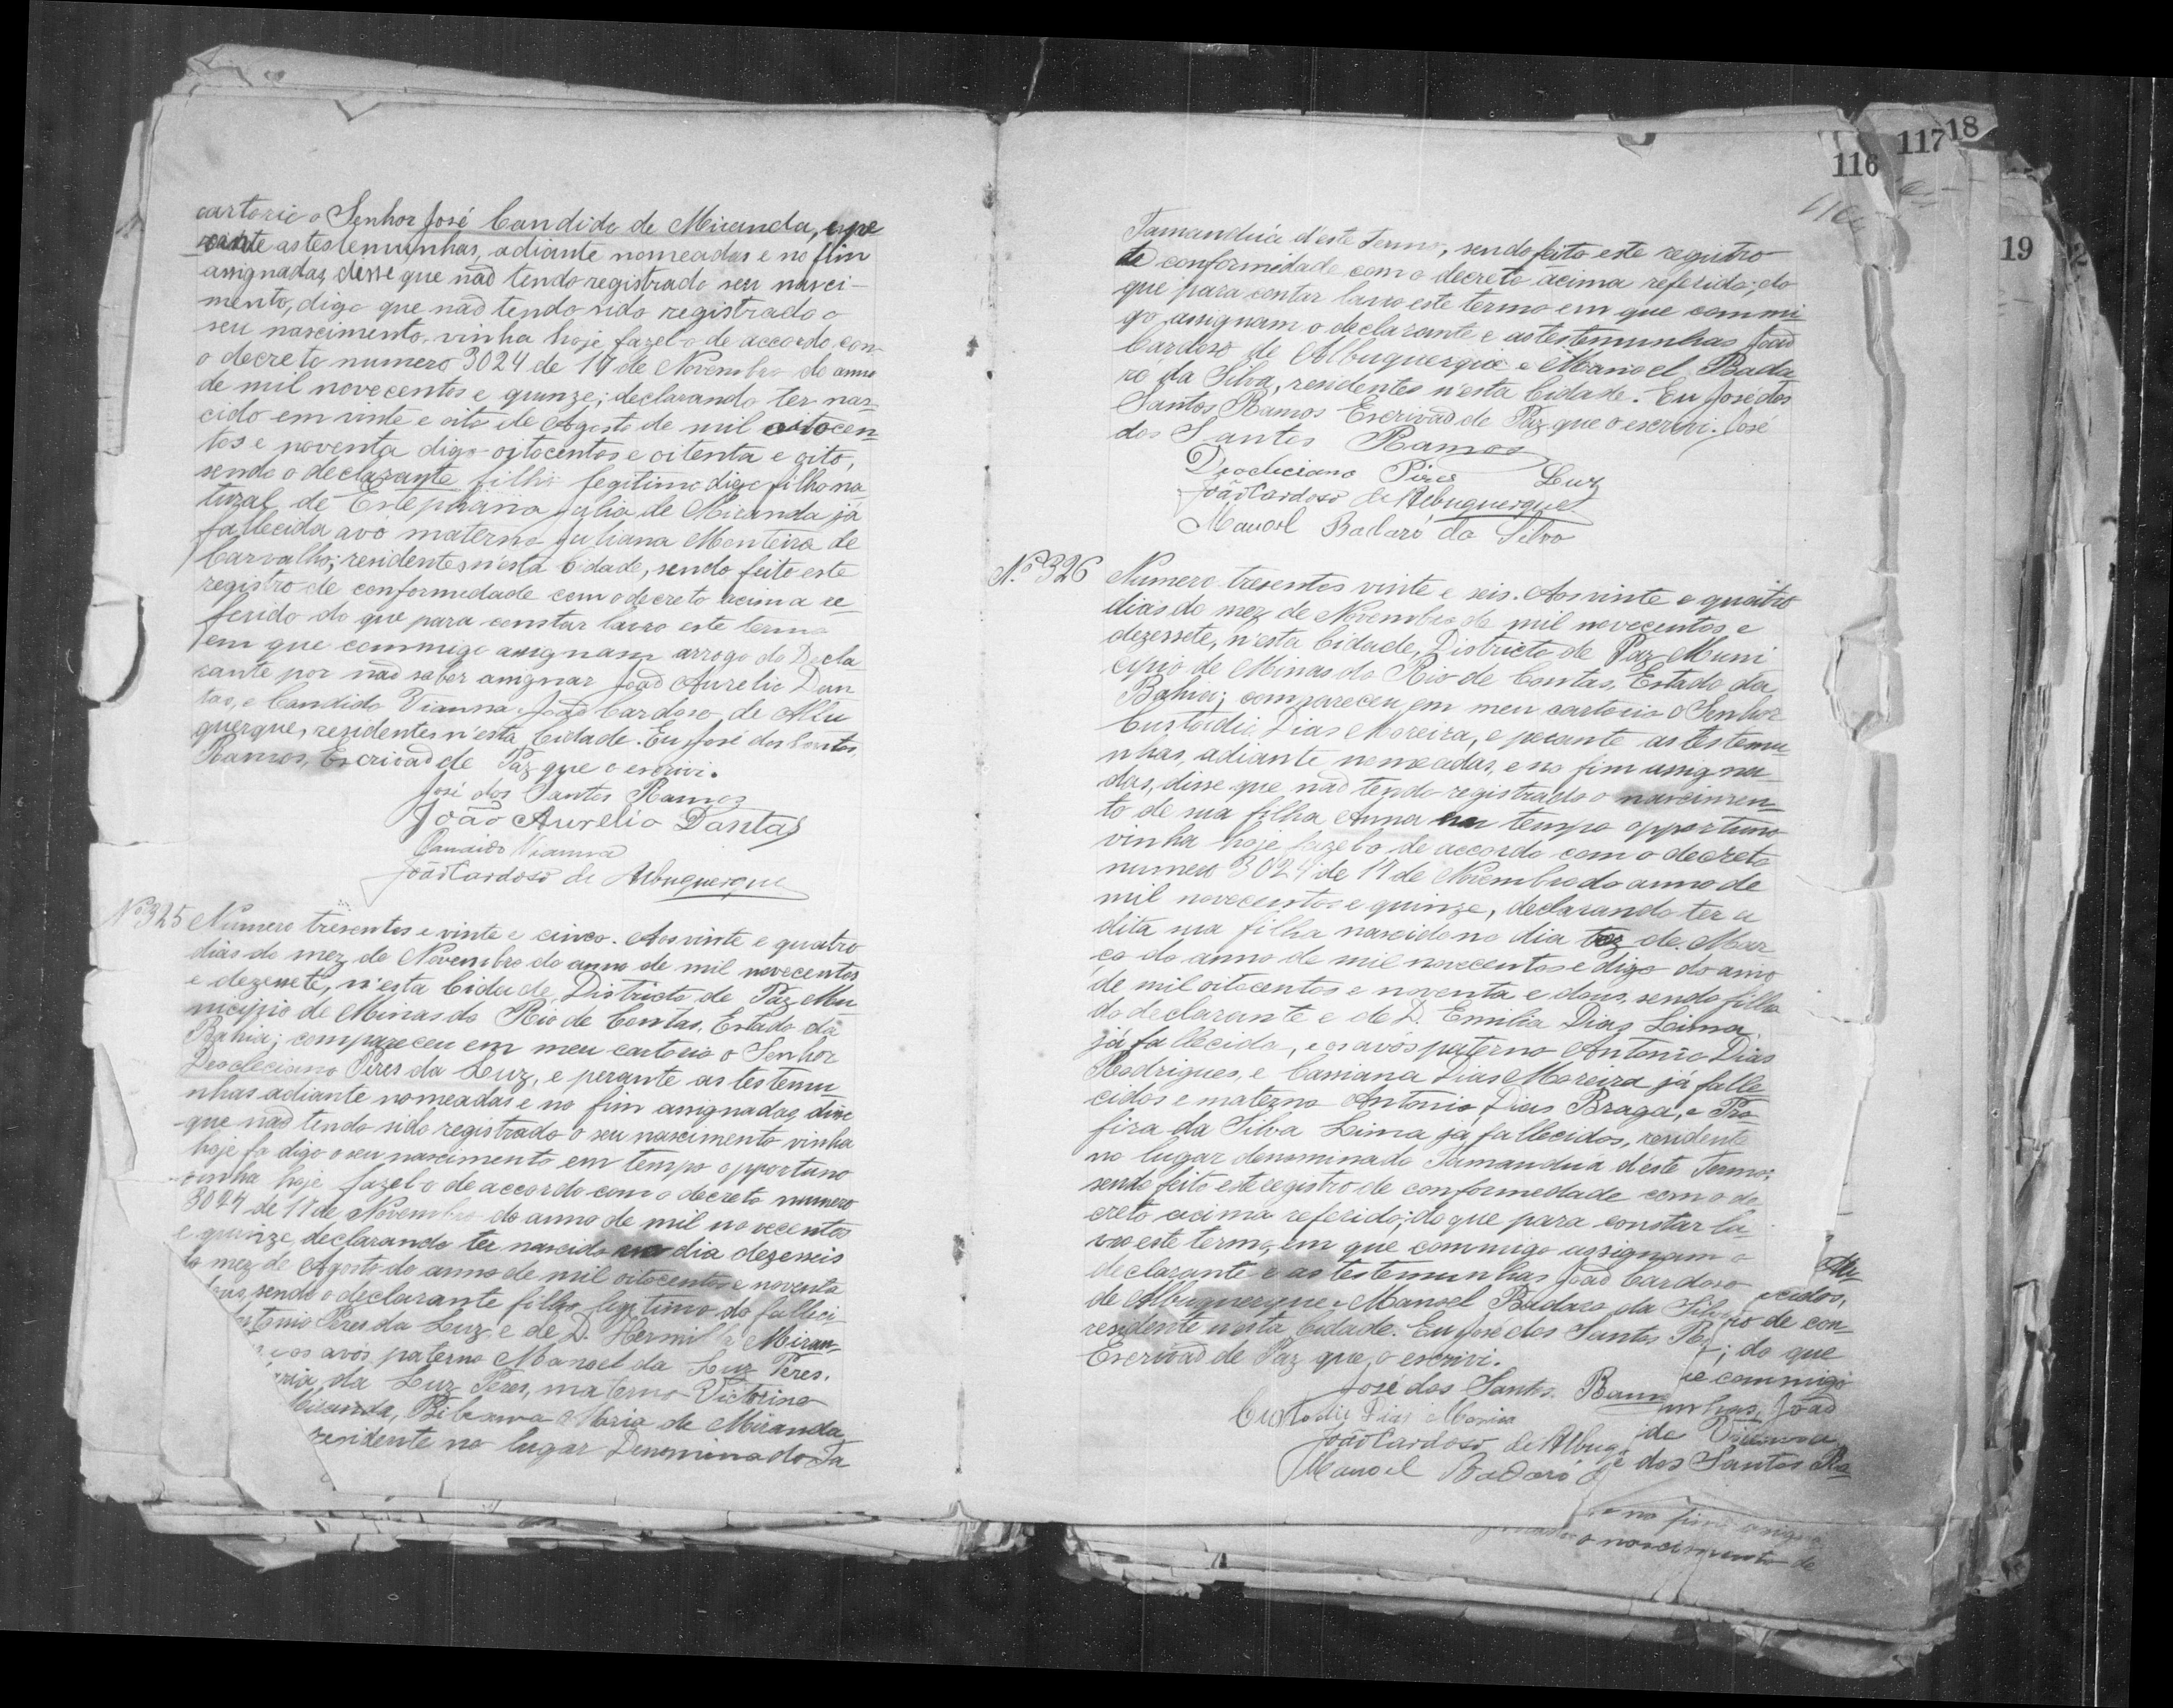 cartorio o Senhor José Candido de Miranda, e pe
rante as testemunhas, adiante nomeadas e no fim
assignadas, disse que não tendo registrado seu nasci-
mento, digo que não tendo sido registrado o
seu nascimento, vinha hoje fazel-o de accordo com
o decreto numero 3024 de 17 de Novembro do anno
de mil novecentos e quinze; declarando ter nas-
cido em vinte e oito de Agosto de mil oitocen
tos e noventa digo oitocentos e oitenta e oito,
sendo o declarante filho legitimo digo filho na-
tural de Estephania Julia de Miranda já
fallecida avó materna Juliana Monteiro de
Carvalho; residentes n'esta Cidade, sendo feito este
registro de conformidade com o decreto acima re-
ferido do que para constar lavro este termo
em que commigo assignam arrogo do Decla
rante por não saber assignar João Aurelio Dan
tas, e Candido Vianna João Cardoso de Albu
querque, residentes n'esta Cidade. Eu José dos Santos
Ramos, Escrivão de Paz que o escrivi.
José dos Santos Ramos
João Aurelio Dantas
Candido Vianna
João Cardoso de Albuquerque
Nº 325 Numero tresentos e vinte e cinco. Aos vinte e quatro
dias do mez de Novembro do anno de mil novecentos
e dezesete, n'esta Cidade, Districto de Paz Mu-
nicipio de Minas do Rio de Contas, Estado da
Bahia; compareceu em meu cartorio o Senhor
Deocleciano Pires da Luz, e perante as testemu
nhas adiante nomeadas e no fim assignadas, disse
que não tendo sido registrado o seu nascimento vinha
hoje fa digo o seu nascimento em tempo opportuno
vinha hoje fazel-o de accordo com o decreto numero
3024 de 17 de Novembro do anno de mil novecentos
e quinze, declarando ter nascido no dia dezesseis
do mez de Agosto do anno de mil oitocentos e noventa
sendo o declarante filho legitimo do falleci
Antonio Peres da Luz e de D. Hermilla Miran-
e os avos paterno Manoel da Luz Peres,
da Luz Peres, materno Victorino
Miranda, Maria de Miranda
residente no lugar Denominado Ta
116
117
18
19
Tamanduá d'este termo, sendo feito este registro
de conformidade com o decreto acima referido; do
que para contar lavro este termo em que commi
go assignam o declarante e as testemunhas João
Cardoso de Albuquerque e Manoel Bada
ro da Silva, residentes n'esta Cidade. Eu José dos
Santos Ramos Escrivão de Paz que o escrivi. José
dos Santos Ramos
Deocleciano Pires Luz
João Cardoso de Albuquerque
Manoel Badaró da Silva
Nº 326 Numero tresentos vinte e seis. Aos vinte e quatro
dias do mez de Novembro de mil novecentos e
dezessete, n'esta Cidade, Districto de Paz Muni
cipio de Minas do Rio de Contas, Estado da
Bahia; compareceu em meu cartorio o Senhor
Custodio Dias Moreira, e perante as testemu
nhas, adiante nomeadas, e no fim assigna
das, disse que não tendo registrado o nascimen
to de sua filha Anna em tempo opportuno
vinha hoje fazel-o de accordo com o decreto
numero 3024 de 17 de Novembro do anno de
mil novecentos e quinze, declarando ter a
dita sua filha nascido no dia tez de Mar
ço do anno de mil novecentos e digo do anno
de mil oitocentos e noventa e dous, sendo filha
do declarante e de D. Emilia Dias Lima,
já fallecida, e os avós paterno Antonio Dias
Rodrigues, e Cassiana Dias Moreira já falle
cidos e materno Antonio Dias Braga, e Pro-
fira da Silva Lima já fallecidos, residente
no lugar denominado Tamanduá d'este Termo;
sendo feito este registro de conformedade com o de
creto acima referido; do que para constar la-
vro este termo, em que commigo assignam o
declarante e as testemunhas João Cardoso
de Albuquerque e Manoel Badaro da Silva
residente n'esta Cidade. Eu José dos Santos Ra
Escrivão de Paz que o escrivi.
José dos Santos Ramo
Custodio Dias Moreira
João Cardoso de Albuq
Manoel Badaró
cidos,
de con-
; do que
e commigo
nhas, João
de Vianna
dos Santos Ra
e no fim assig
o nascimento de